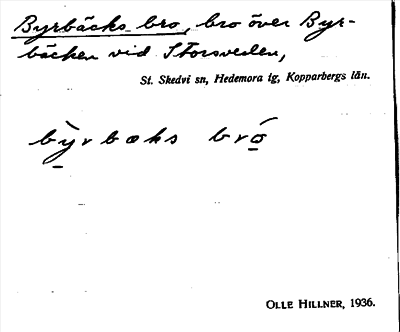 Byrbäcks bro, bro över Byr-
bäcken vid Storsveden,
St. Skedvi sn, Hedemora tg, Kopparbergs län.
bỳ̱rbæks bró̱
OLLE HILLNER, 1936.